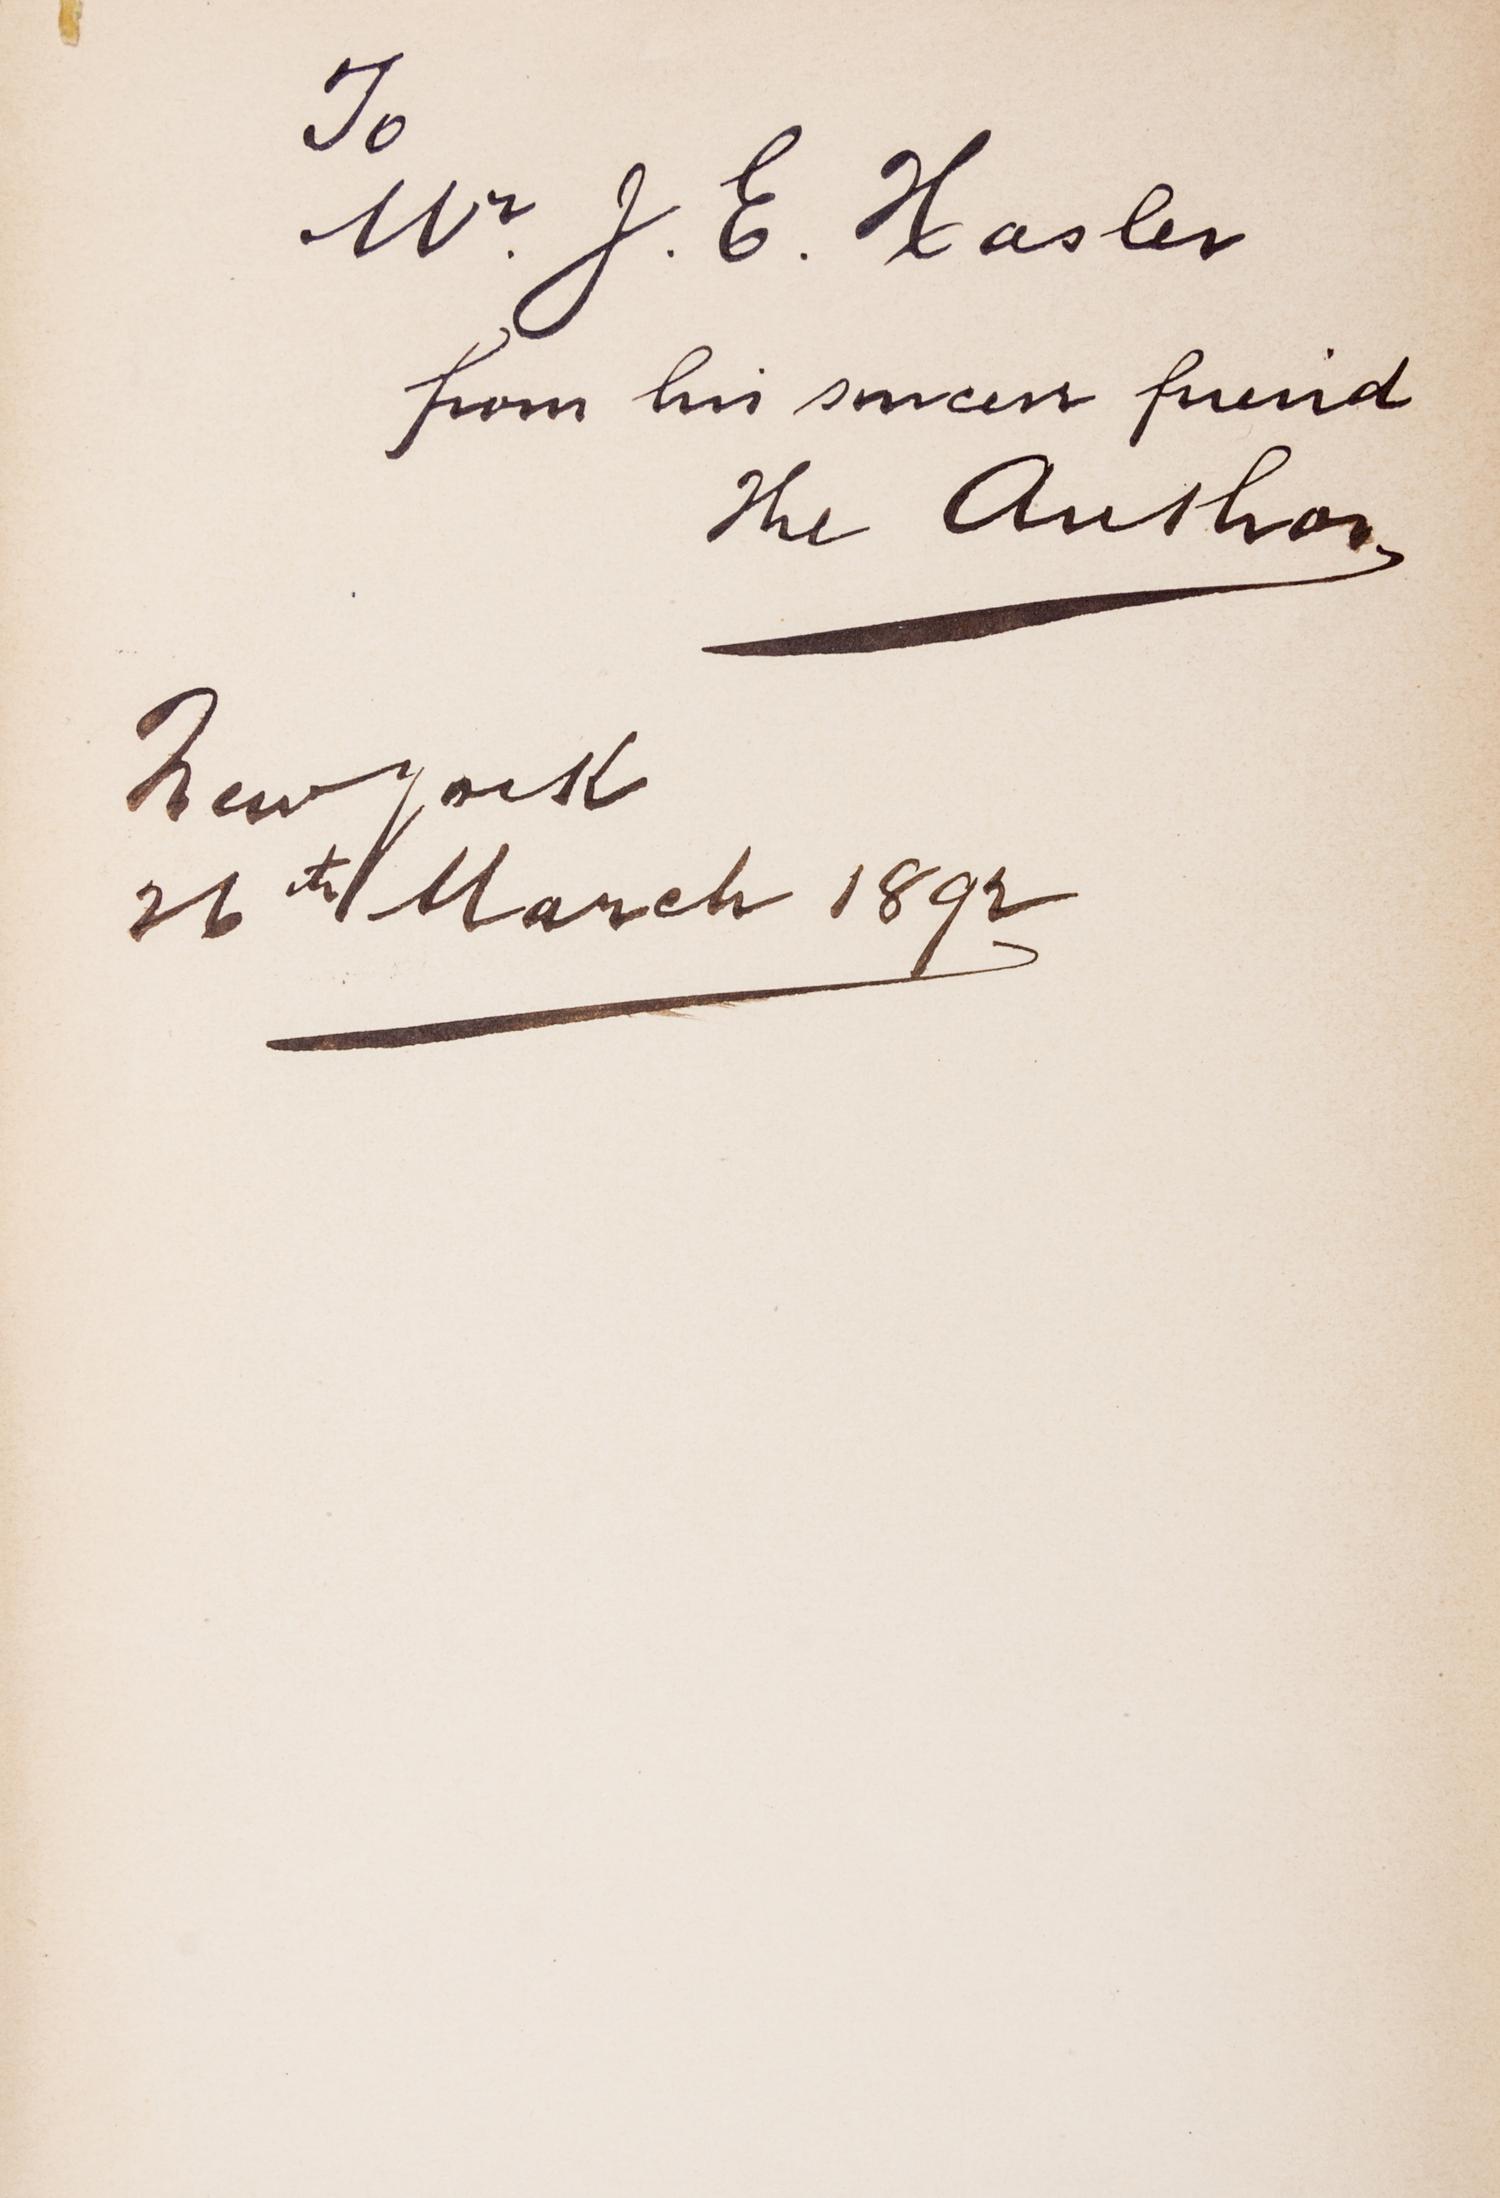 To
Mr. J. E. Hasler
from his sincere friend
the Author
New York
26th March 1892